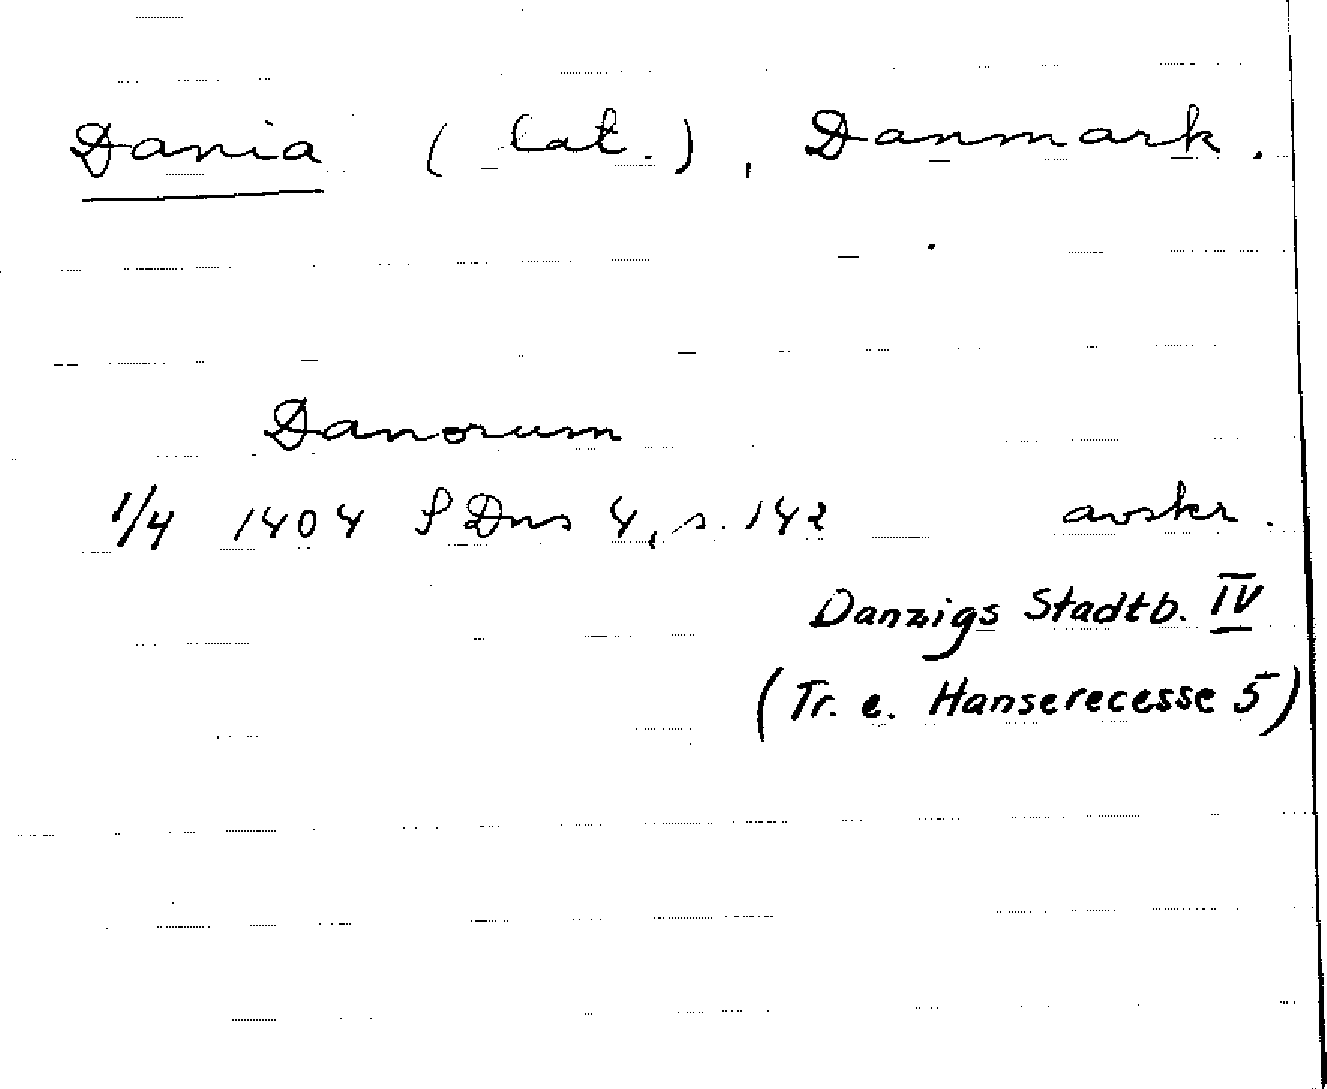 Dania (lat.), Danmark.
Danorum
1/4 1404 SDns 4, s. 142 avskr.
Danzigs Stadtb. IV
(Tr. e. Hanserecesse 5)